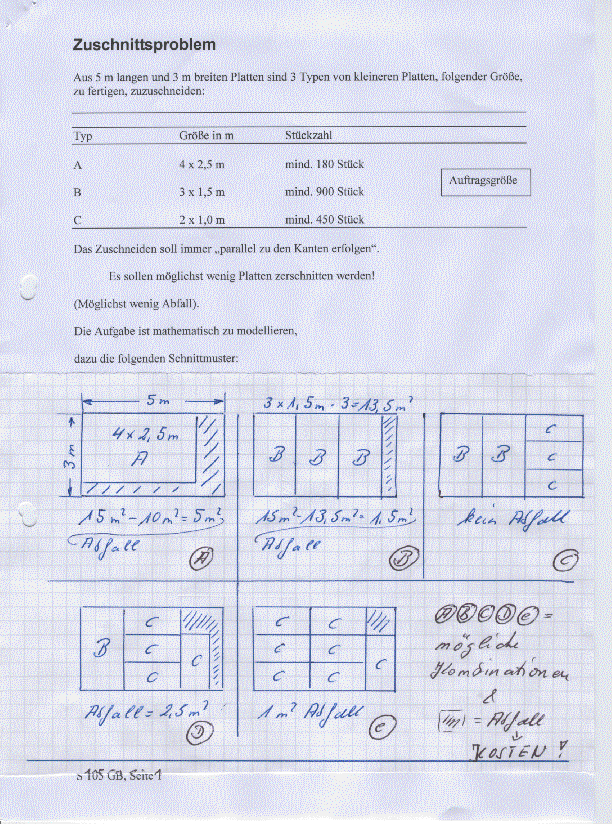 Zuschnittsproblem
Aus 5 m langen und 3 m breiten Platten sind 3 Typen von kleineren Platten, folgender Größe,
zu fertigen, zuzuschneiden:
Typ Größe in m Stückzahl
A 4 x 2,5 m mind. 180 Stück
Auftragsgröße
B 3 x 1,5 m mind. 900 Stück
C 2 x 1,0 m mind. 450 Stück
Das Zuschneiden soll immer „parallel zu den Kanten erfolgen“.
Es sollen möglichst wenig Platten zerschnitten werden!
(Möglichst wenig Abfall).
Die Aufgabe ist mathematisch zu modellieren,
dazu die folgenden Schnittmuster:
5 m
3 m
4 x 2,5 m
A
15 m² - 10 m² = 5 m²
Abfall
A
3 x 1,5 m · 3 = 13,5 m²
B B B
15 m² - 13,5 m² = 1,5 m²
Abfall
B
B B C
C
C
kein Abfall
C
B C
C C
C
Abfall = 2,5 m²
D
C C
C C C
C C
1 m² Abfall
e
A B C D e =
mögliche
Kombinationen
&
= Abfall
KOSTEN!
S 105 GB, Seite 1